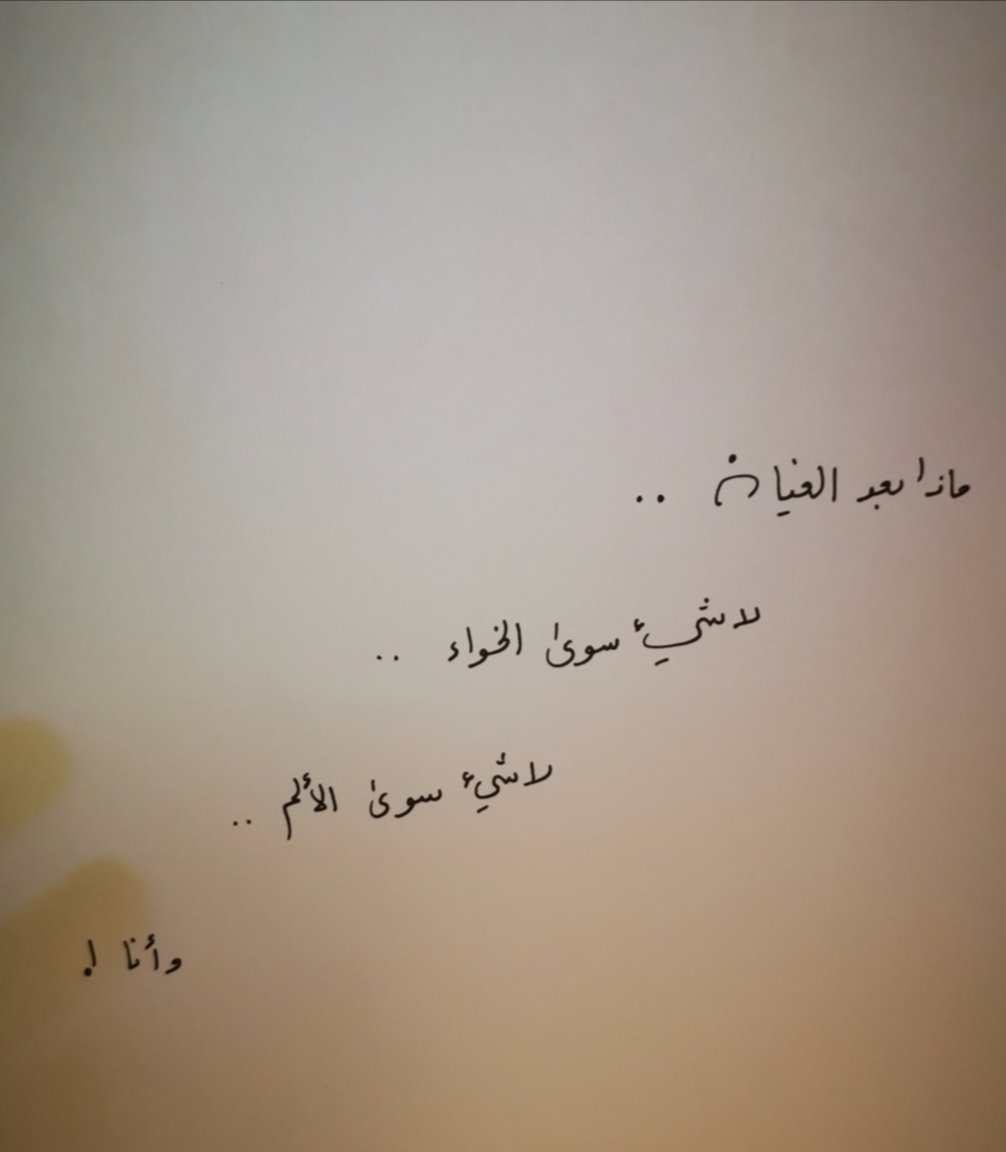 ماذا بعد الغياب ..
لا شيء سوىٰ الخواء ..
لا شيء سوىٰ الألم ..
وأنا !